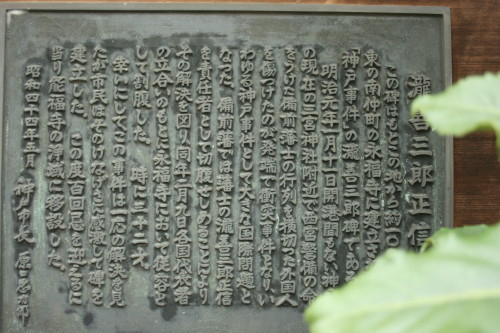 瀧善三郎正信
この碑はもとこの地から約一〇
東の南仲町の永福寺に建立さ
「神戸事件」の瀧善三郎碑であ
明治元年一月十一日開港間もない神
の現在の三宮神社附近で西宮警備の命
をうけた備前藩士の行列を横切った外国人
を傷けたのが発端で衝突事件となりい
わゆる神戸事件として大きな国際問題と
なった 備前藩では藩士の瀧善三郎正信
を責任者として切腹せしめることにより
その解決を図り同年二月九日各国代表者
の立合いのもとに永福寺において従容と
して割腹した 時に三十二才
幸いにしてこの事件は一応の解決を見
たが市民はそのけなげさに感激して碑を
建立した この度百回忌を迎えるに
当り能福寺の浄域に移設した
昭和四十四年五月 神戸市長 原口忠次郎